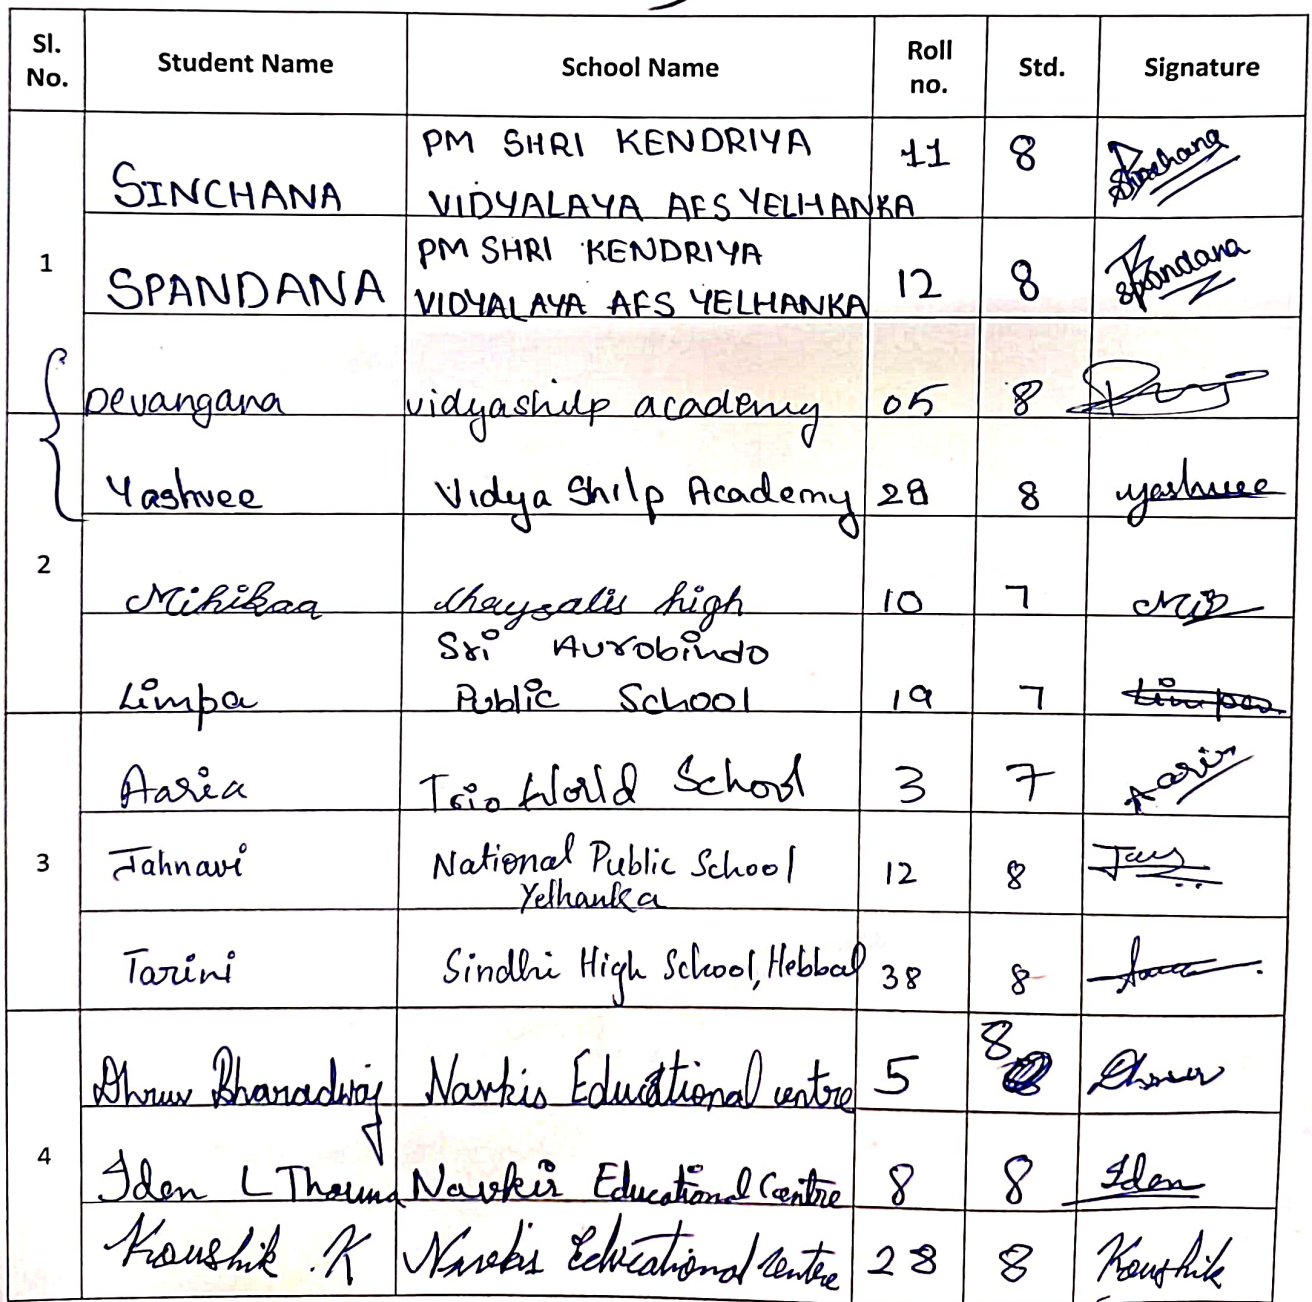 Sl. No. Student Name School Name Roll no. Std. Signature
PM SHRI KENDRIYA 11 8 Sinchana
SINCHANA VIDYALAYA AFS YELHANKA
1 PM SHRI KENDRIYA Spandana
SPANDANA VIDYALAYA AFS YELHANKA 12 8
Devangana vidyashilp academy 05 8
Yashvee Vidya Shilp Academy 28 8 yashvee
2
Mihikaa high 10 7
Sri Aurobindo
Limpa Public School 19 7 Limpa
Aaria Trio World School 3 7 Aaria
3 Jahnavi National Public School 12 8
Yelhanka
Tarini Sindhi High School, Hebbal 38 8
Dhruv Bharadwaj Navkis Educational centre 5 8 Dhruv
4 Iden L Thomas Navkis Educational Centre 8 8 Iden
Koushik .K Navkis Educational Centre 28 8 Koushik